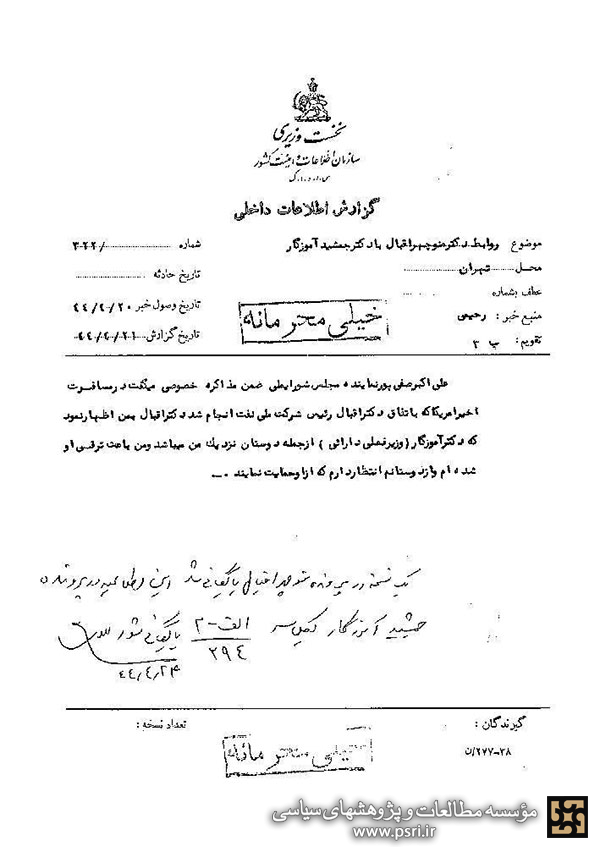 نخست وزیری
سازمان اطلاعات و امنیت کشور
س.ا.و.ا.ک
گزارش اطلاعات داخلی
موضوع روابط دکتر منوچهر اقبال با دکتر جمشید آموزگار
شماره ۳۲۲/
محل تهران
تاریخ حادثه
عطف بشماره
تاریخ وصول خبر ۴۴/۴/۲۰
منبع خبر : رحیمی
خیلی محرمانه
تاریخ گزارش ۴۴/۴/۲۱
تقویم : ب ۳
علی اکبر صفی پور نماینده مجلس شورایملی ضمن مذاکره خصوصی میگفت در مسافرت
اخیر امریکا که باتفاق دکتر اقبال رئیس شرکت ملی نفت انجام شد دکتر اقبال بمن اظهار نمود
که دکتر آموزگار (وزیر فعلی دارائی ) از جمله دوستان نزدیک من میباشد ومن باعث ترقی او
شده ام و از دوستانم انتظار دارم که از او حمایت نمایند
یک نسخه در پرونده منوچهر اقبال بایگانی شد این اطلاعیه در پرونده
جمشید آموزگار کلاسه الف-۲ / ۲۹۴ بایگانی شود
۴۴/۴/۲۴
گیرندگان :
تعداد نسخه :
خیلی محرمانه
۲۷۷-۳۸/ن
مؤسسه مطالعات و پژوهشهای سیاسی
www.psri.ir